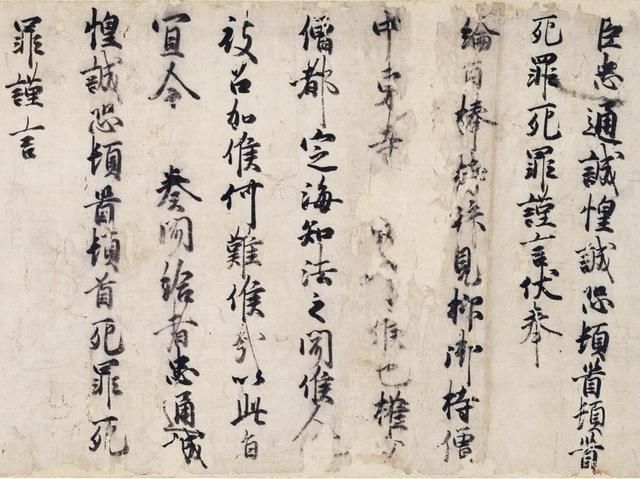 臣忠通誠惶誠恐頓首頓首
死罪死罪謹言伏奉
綸旨捧持拝見抑御持僧
中 候也権少
僧都定海知法之聞候人
被召加候何難候乎以此旨
宜令 奏聞給者忠通誠
惶誠恐頓首頓首死罪死
罪謹言